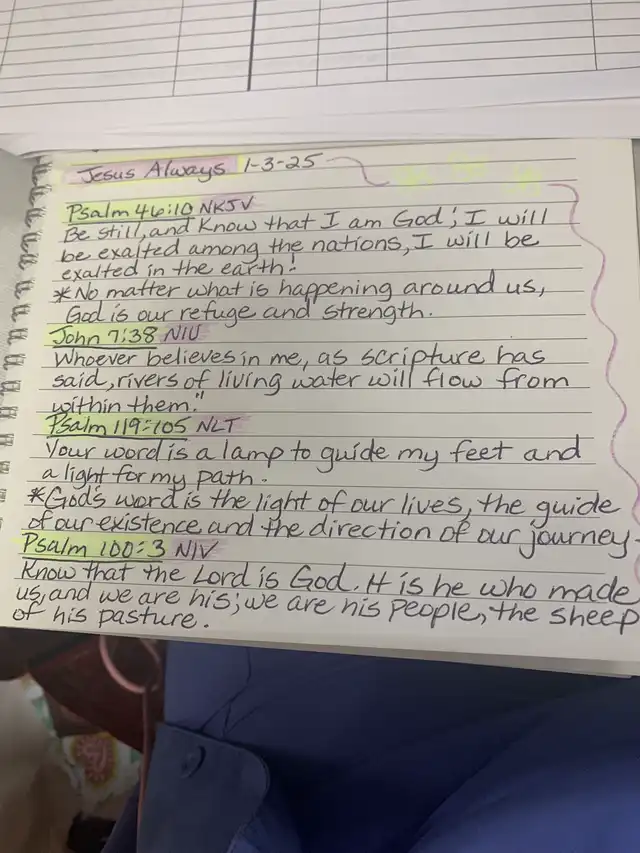 Jesus Always 1-3-25
Psalm 46:10 NKJV
Be still, and know that I am God; I will
be exalted among the nations, I will be
exalted in the earth!
*No matter what is happening around us,
God is our refuge and strength.
John 7:38 NIV
Whoever believes in me, as scripture has
said, rivers of living water will flow from
within them."
Psalm 119:105 NLT
Your word is a lamp to guide my feet and
a light for my path.
*God's word is the light of our lives, the guide
of our existence and the direction of our journey.
Psalm 100:3 NIV
Know that the Lord is God. It is he who made
us, and we are his; we are his people, the sheep
of his pasture.